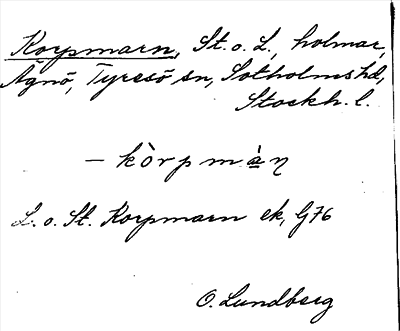 Korpmarn, St. o. L., holmar,
Ägnö, Tyresö sn, Sotholms hd,
Stockh. l.
– kòrpmàṇ
L. o. St. Korpmarn ek, G76
O. Lundberg